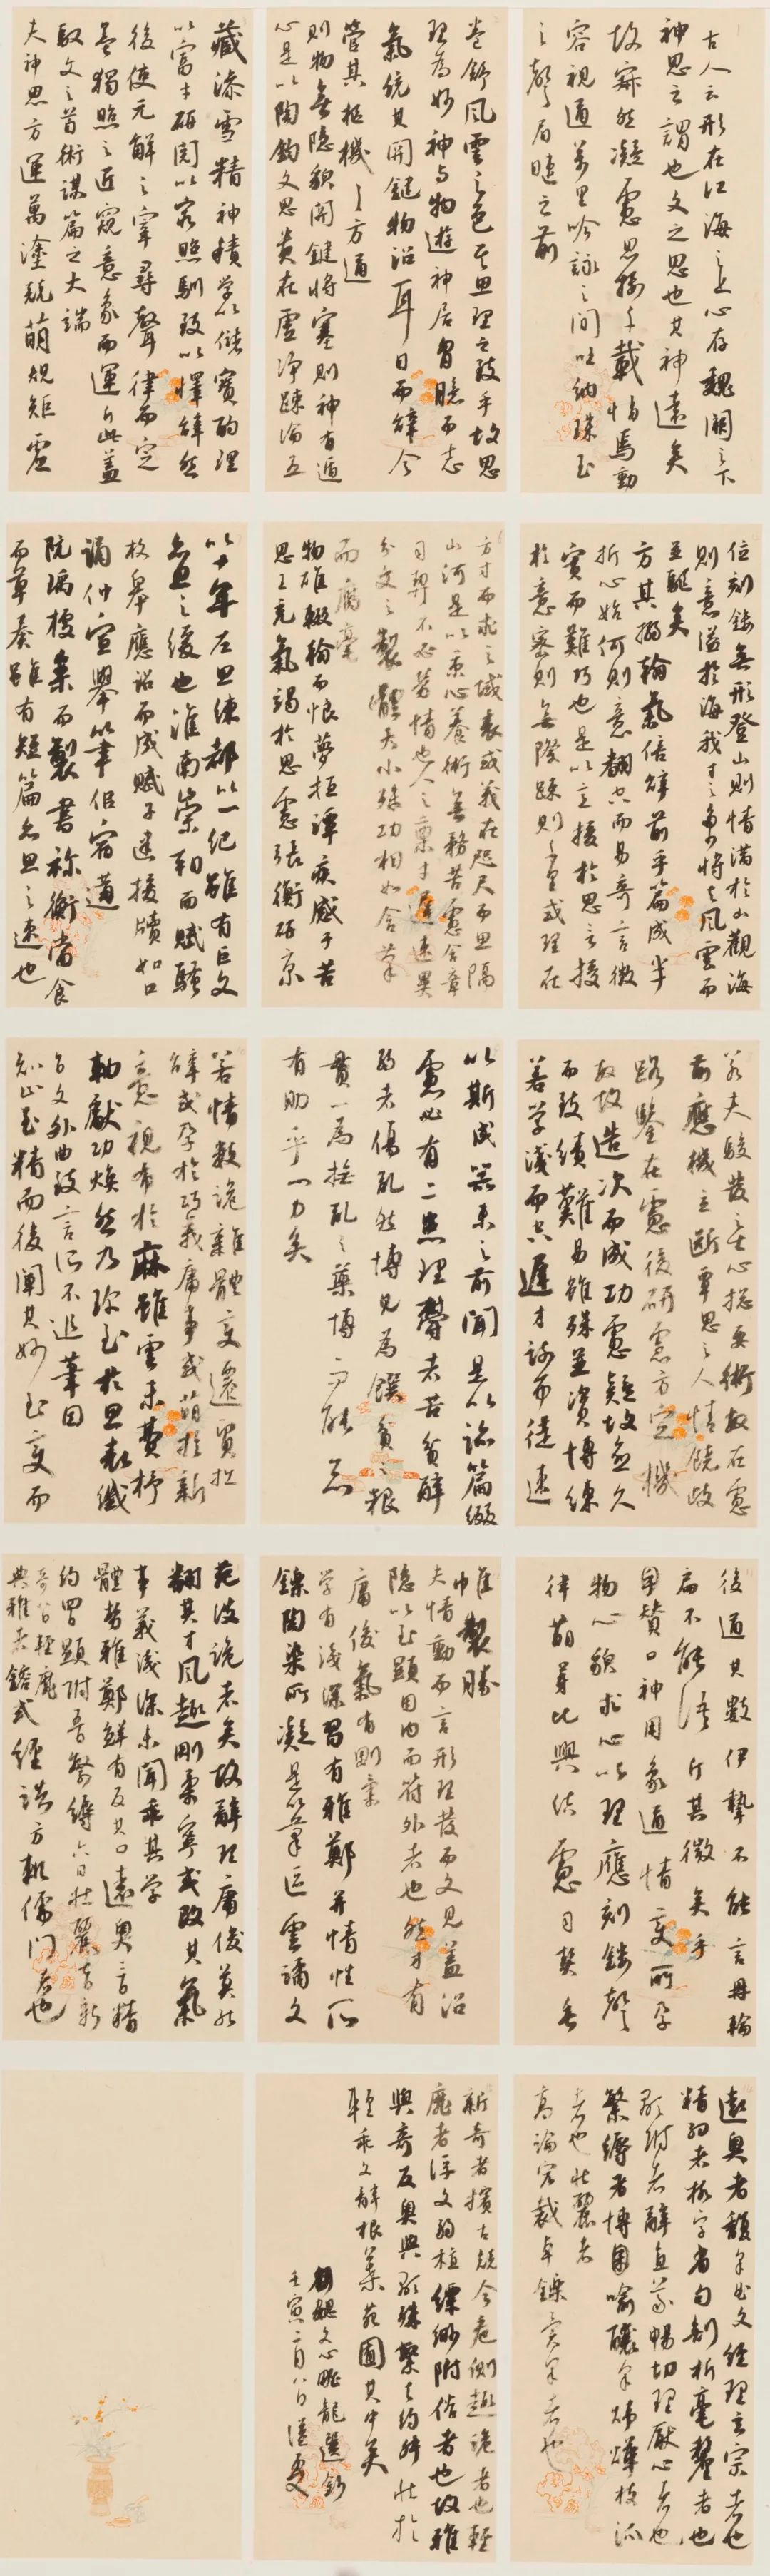 古人云形在江海之上心存魏闕之下
神思之謂也文之思也其神遠矣
故寂然凝慮思接千載悄焉動
容視通萬里吟詠之間吐納珠玉
之聲眉睫之前
卷舒風雲之色其思理之致乎故思
理為妙神與物遊神居胸臆而志
氣統其關鍵物沿耳目而辭令
管其樞機〻方通
則物無隱貌關鍵將塞則神有遁
心是以陶鈞文思貴在虛淨疏瀹五
藏澡雪精神積學以儲寶酌理
以富才研閱以窮照馴致以懌辭然
後使元解之宰尋聲律而定
墨獨照之匠窺意象而運斤此蓋
馭文之首術謀篇之大端
夫神思方運萬塗競萌規矩虛
位刻鏤無形登山則情滿於山觀海
則意溢於海我才之多少將與風雲而
並驅矣
方其搦翰氣倍辭前乎篇成半
折心始何則意翻空而易奇言徵
實而難巧也是以意授於思言授
於意密則無際疏則千里或理在
方寸而求之域表或義在咫尺而思隔
山河是以秉心養術無務苦慮含章
司契不必勞情也人之稟才遲速異
分文之製體大小殊功相如含筆
而腐毫
揚雄輟翰而驚夢桓譚疾感于苦
思王充氣竭於思慮張衡研京
以十年左思練都以一紀雖有巨文
亦思之緩也淮南崇朝而賦騷
枚皋應詔而成賦子建援牘如口
誦仲宣舉筆似宿遘
阮瑀據案而製書禰衡當食
而草奏雖有短篇亦思之速也
若夫駿發之士心總要術敏在慮
前應機立斷覃思之人情饒歧
路鑒在慮後研慮方定機
敏故造次而成功慮疑故愈久
而致績難易雖殊並資博練
若學淺而空遲才疏而徒速
以斯成器未之前聞是以臨篇綴
慮必有二患理鬱者苦貧辭
溺者傷亂然博見為饋貧之糧
貫一為拯亂之藥博而能一亦
有助乎心力矣
若情數詭雜體變遷貿拙
辭或孕於巧義庸事或萌於新
意視布於麻雖雲未費杼
軸獻功煥然乃珍至於思表纖
旨文外曲致言所不追筆固
知止至精而後闡其妙至變而
後通其數伊摯不能言鼎輪
扁不能語斤其微矣乎
單贊曰神用象通情變所孕
物心貌求心以理應刻鏤聲
律萌芽比興結慮司契垂
帷製勝
夫情動而言形理發而文見蓋沿
隱以至顯因內而符外者也然才有
庸俊氣有剛柔
學有淺深習有雅鄭并情性所
鑠陶染所凝是以筆區雲譎文
苑波詭者矣故辭理庸俊莫能
翻其才風趣剛柔寧或改其氣
事義淺深未聞乖其學
體勢雅鄭鮮有反其曰遠奧三曰精
約四曰顯附五曰繁縟六曰壯麗七曰新
奇八曰輕靡
典雅者鎔式經誥方軌儒門者也
遠奧者馥采曲文經理玄宗者也
精約者核字省句剖析毫釐者也
顯附者辭直義暢切理厭心者也
繁縟者博喻釀采煒燁枝派
者也壯麗者
高論宏裁卓鑠異采者也
新奇者擯古競今危側趣詭者也輕
靡者浮文弱植縹緲附俗者也故雅
與奇反奧與顯殊繁與約舛壯於
輕乖文辭根葉苑囿其中矣
劉勰文心雕龍選鈔
壬寅二月